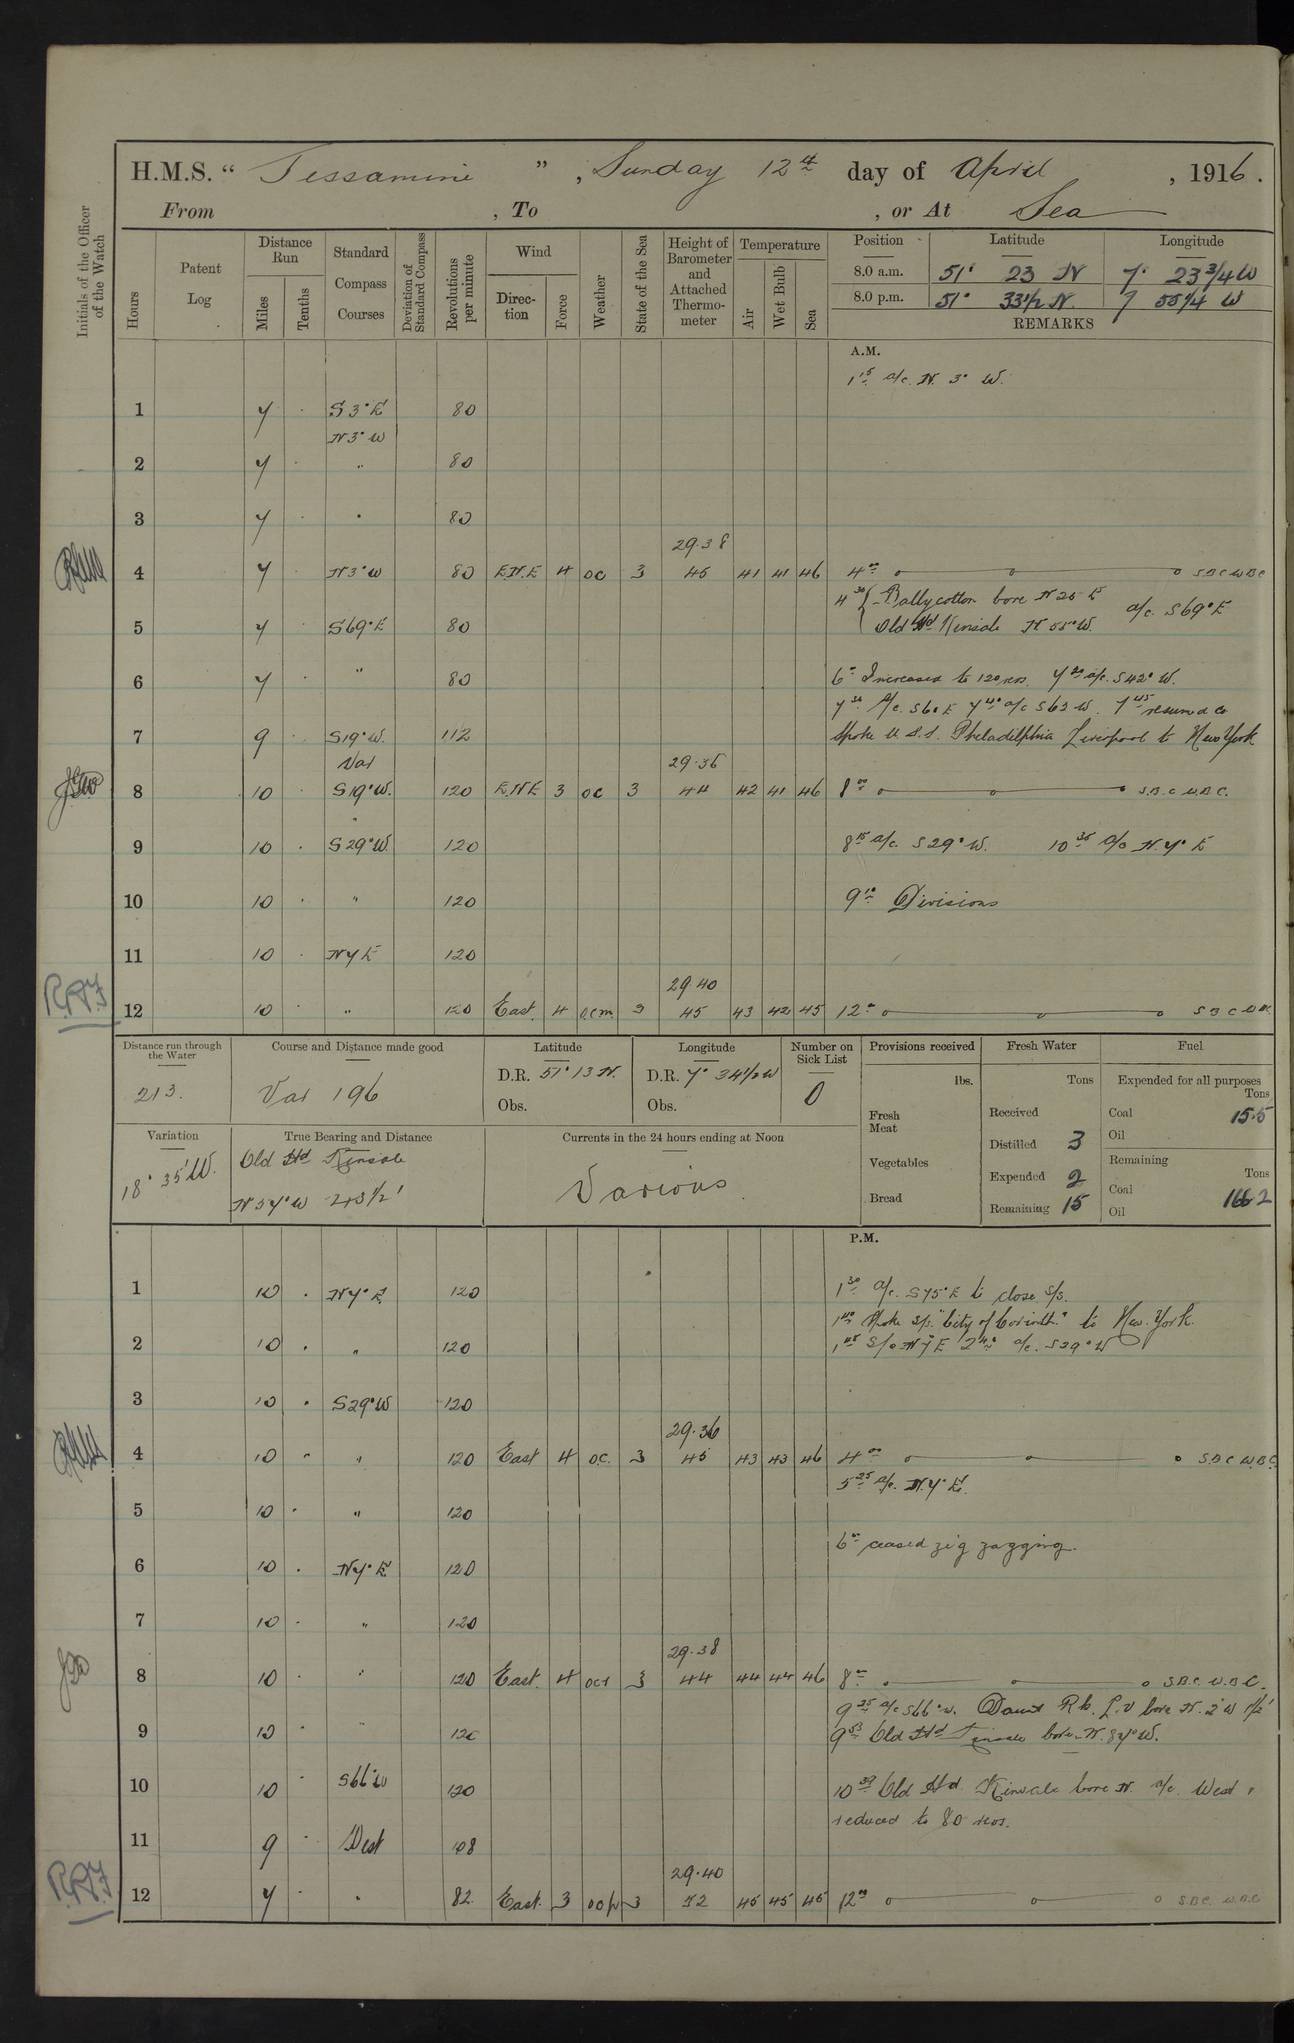 H.M.S. “ Jessamine ” , Sunday 12th day of April , 1916 .
From , To , or At Sea
Initials of the Officer of the Watch
Hours
Patent Log
Distance Run
Miles
Tenths
Standard Compass Courses
Deviation of Standard Compass
Revolutions per minute
Wind
Direc-tion
Force
Weather
State of the Sea
Height of Barometer and Attached Thermo-meter
Temperature
Air
Wet Bulb
Sea
Position Latitude Longitude
8.0 a.m. 51° 23 N 7° 23 3/4 W
8.0 p.m. 51° 33 1/2 N. 7 55 1/4 W
REMARKS
A.M.
1 15 a/c. N. 3° W.
1 7 S3°E 80
N3°W
2 7 " 80
3 7 " 80
29.38
4 7 N3°W 80 E.N.E 4 oc 3 45 41 41 46 4 00 S.B.C W.B.C
4 30 Ballycotton bore N 25 E
5 7 S69°E 80 Old Hd Kinsale N 55°W. a/c. S69°E
6 7 " 80 6 - Increased to 120 revs. 7 20 a/c. S42°W.
7 30 A/c. S60E 7 40 a/c S63 W. 7 45 resumed co
7 9 S19°W. 112 Spoke U.S.S. Philadelphia Liverpool to New York
Var 29.36
8 10 S19°W. 120 E.N.E 3 oc 3 44 42 41 46 8 00 S.B.C W.B.C.
9 10 S29°W. 120 8 15 a/c. S29°W. 10 35 a/c N.7°E
10 10 " 120 9 10 Divisions
11 10 N7E 120
29.40
12 10 " 120 East. 4 o.c.m. 3 45 43 42 45 12 S B C W.B.
Distance run through the Water
213.
Course and Distance made good
Var 196
Latitude
D.R. 51° 13 N.
Obs.
Longitude
D.R. 7° 34 1/2 W
Obs.
Number on Sick List
0
Variation
18° 35' W.
True Bearing and Distance
Old Hd Kinsale
N57°W 43 1/2 '
Currents in the 24 hours ending at Noon
Various
Provisions received
lbs.
Fresh Meat
Vegetables
Bread
Fresh Water
Tons
Received
Distilled 3
Expended 2
Remaining 15
Fuel
Expended for all purposes
Tons
Coal 15.5
Oil
Remaining
Tons
Coal 166.2
Oil
P.M.
1 10 N7°E. 120 1 30 a/c. S75°E to close S/S.
1 40 Spoke S/S. "City of Corinth." to New York.
2 10 " 120 1 45 S/o N7E 2 40 a/c. S29°W
3 10 S29°W 120
29.36
4 10 " 120 East 4 oc. 3 45 43 43 46 4 00 S.B.C W.B.C.
5 25 a/c. N.7°E.
5 10 " 120
6 - ceased zig zagging.
6 10 N7°E 120
7 10 " 120
29.38
8 10 " 120 East. 4 ocr 3 44 44 44 46 8 S.B.C. W.B.C.
9 25 a/c S66°W. Daunt Rk. L.V bore N. 2°W 1 1/2'
9 10 " 120 9 53 Old Hd Kinsale bore N. 87°W.
10 10 S66°W 120 10 39 Old Hd. Kinsale bore N. a/c. West &
reduced to 80 revs.
11 9 West 108
29.40
12 7 " 82. East. 3 3 52 45 45 45 12 S.B.C. W.B.C